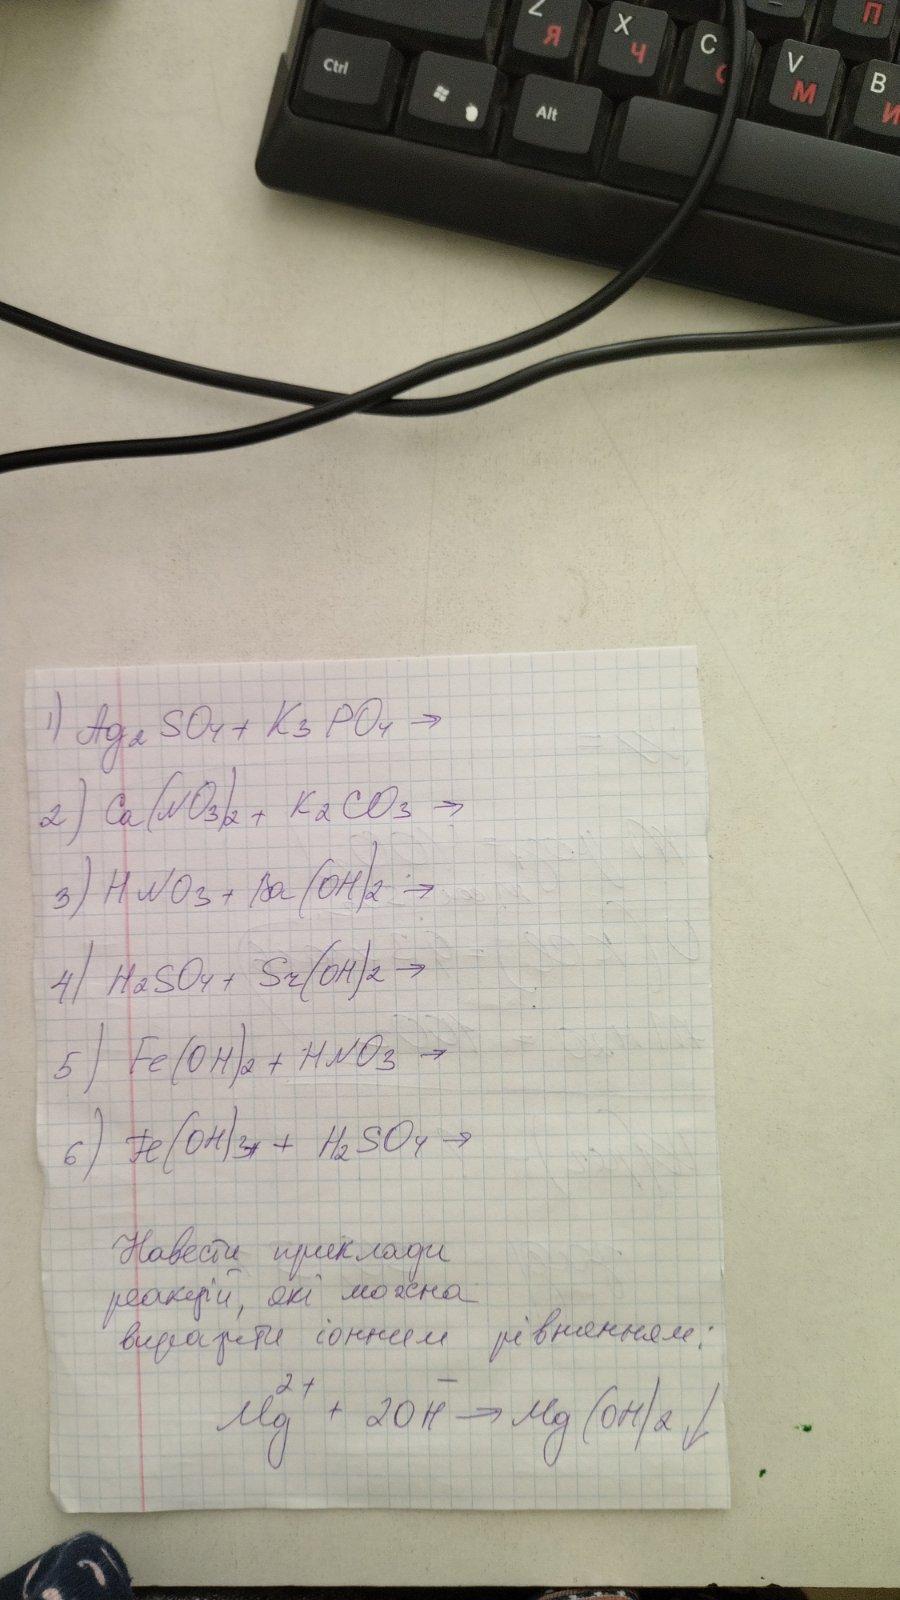 Z Я
X Ч
C С
V М
B И
П
Ctrl
Alt
1) Ag₂SO₄ + K₃PO₄ →
2) Ca(NO₃)₂ + K₂CO₃ →
3) HNO₃ + Ba(OH)₂ →
4) H₂SO₄ + Sr(OH)₂ →
5) Fe(OH)₂ + HNO₃ →
6) Fe(OH)₃ + H₂SO₄ →
Навести приклади
реакцій, які можна
виразити іонним рівнянням:
Mg²⁺ + 2OH⁻ → Mg(OH)₂↓